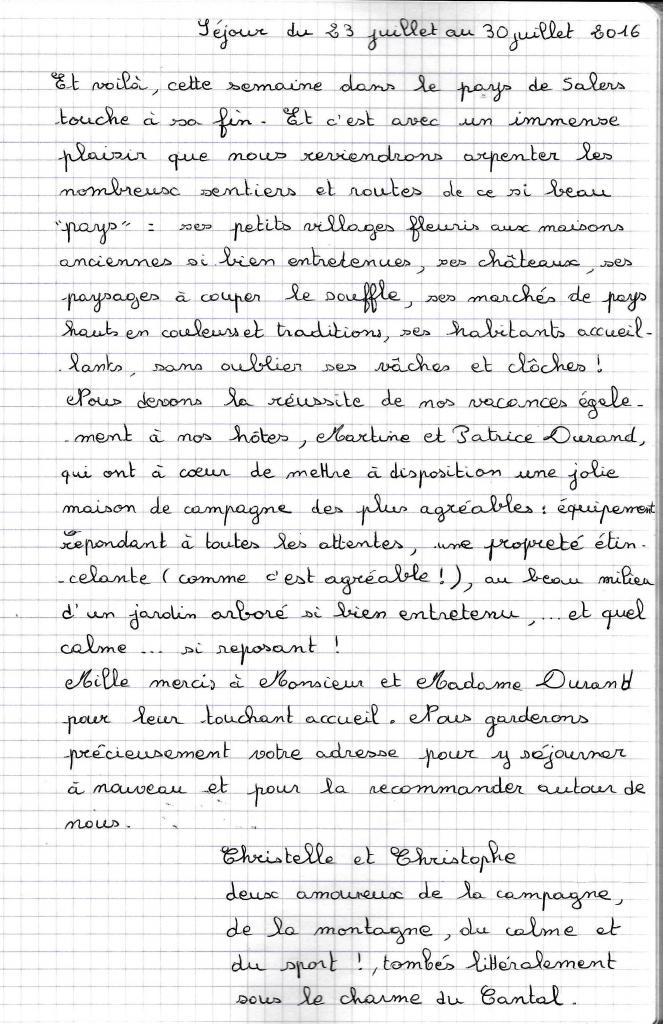 Séjour du 23 juillet au 30 juillet 2016
Et voilà, cette semaine dans le pays de Salers
touche à sa fin. Et c'est avec un immense
plaisir que nous reviendrons arpenter les
nombreux sentiers et routes de ce si beau
"pays" : ses petits villages fleuris aux maisons
anciennes si bien entretenues, ses châteaux, ses
paysages à couper le souffle, ses marchés de pays
hauts en couleurs et traditions, ses habitants accueil-
-lants, sans oublier ses vâches et clôches !
Nous devons la réussite de nos vacances égale-
-ment à nos hôtes, Martine et Patrice Durand,
qui ont à cœur de mettre à disposition une jolie
maison de campagne des plus agréables : équipement
répondant à toutes les attentes, une propreté étin-
-celante (comme c'est agréable !), au beau milieu
d'un jardin arboré si bien entretenu, ... et quel
calme ... si reposant !
Mille mercis à Monsieur et Madame Durand
pour leur touchant accueil. Nous garderons
précieusement votre adresse pour y séjourner
à nouveau et pour la recommander autour de
nous.
Christelle et Christophe
deux amoureux de la campagne,
de la montagne, du calme et
du sport !, tombés littéralement
sous le charme du Cantal.